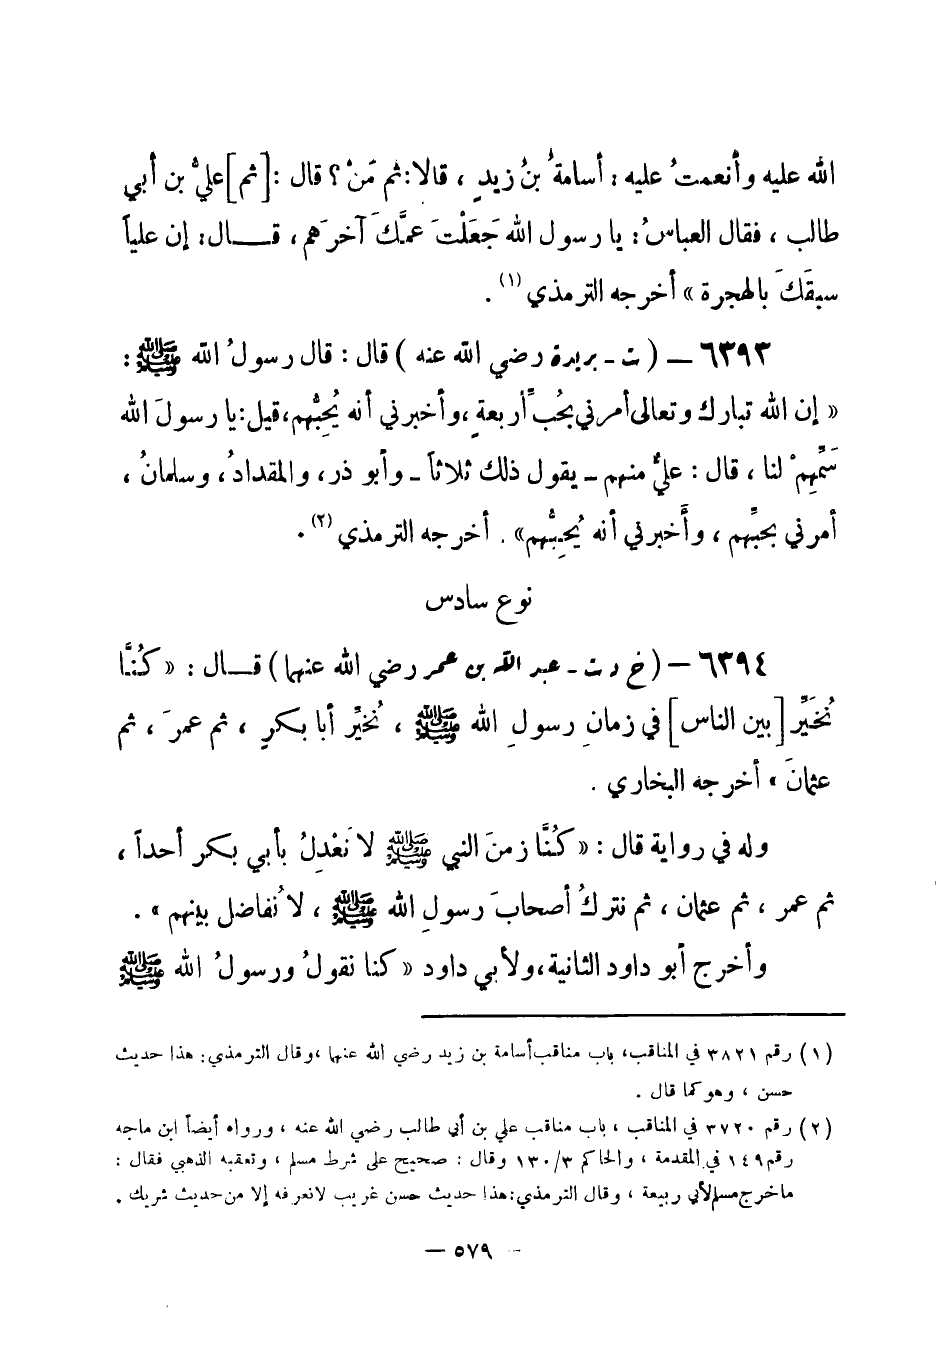 الله عليه وأنعمتُ عليه : أسامةُ بنُ زيدٍ ، قالا: ثم مَنْ ؟ قال : [ثم] عليُّ بن أبي
طالب ، فقال العباسُ: يا رسول الله جَعَلْتَ عمَّكَ آخرَهم ، قــال: إن علياً
سبقَكَ بالهجرة » أخرجه الترمذي (١) .
٦٣٩٣ – ( ت - بريدة رضي الله عنه ) قال : قال رسولُ الله ﷺ :
« إن الله تبارك وتعالى أمرني بحُبِّ أربعةٍ ،وأخبرني أنه يُحِبُّهم،قيل:يا رسولَ الله
سَمِّهِمْ لنا ، قال : عليٌّ منهم – يقول ذلك ثلاثاً – وأبو ذر، والمقدادُ، وسلمانُ ،
أمرني بحبِّهم ، وأَخبرني أنه يُحِبُّهم» . أخرجه الترمذي (٢) .
نوع سادس
٦٣٩٤ – (خ د ت - عبد الله بن عمر رضي الله عنهما) قــال : « كُنَّا
نُخَيِّر [بين الناس] في زمانِ رسولِ الله ﷺ ، نُخيِّر أبا بكرٍ ، ثم عمرَ ، ثم
عثمانَ » أخرجه البخاري .
وله في رواية قال : « كُنَّا زمنَ النبي ﷺ لا نَعْدِلُ بأبي بكر أحداً ،
ثم عمر ، ثم عثمان ، ثم نتركُ أصحابَ رسولِ الله ﷺ ، لا نُفاضل بينهم » .
وأخرج أبو داود الثانية،ولأبي داود « كنا نقولُ ورسولُ الله ﷺ
(١) رقم ٣٨٢١ في المناقب، باب مناقب أسامة بن زيد رضي الله عنهما ،وقال الترمذي: هذا حديث
حسن ، وهو كما قال .
(٢) رقم ٣٧٢٠ في المناقب ، باب مناقب علي بن أبي طالب رضي الله عنه ، ورواه أيضاً ابن ماجه
رقم ١٤٩ في المقدمة ، والحاكم ١٣٠/٣ وقال : صحيح على شرط مسلم ، وتعقبه الذهبي فقال :
ماخرج مسلم لأبي ربيعة ، وقال الترمذي:هذا حديث حسن غريب لانعرفه إلا من حديث شريك .
– ٥٧٩ –